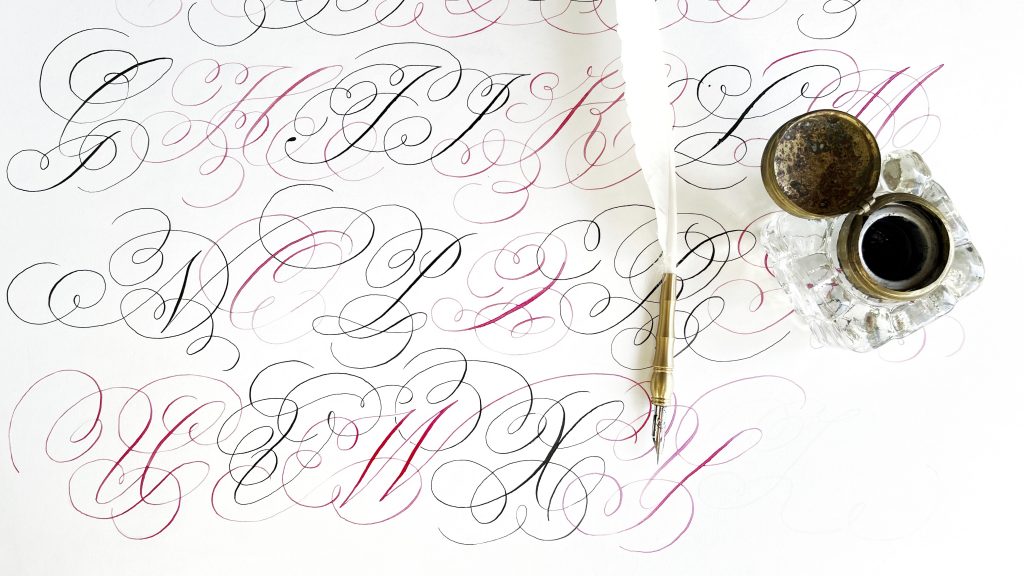 G H I J K L M
N O P Q R
U V W X Y